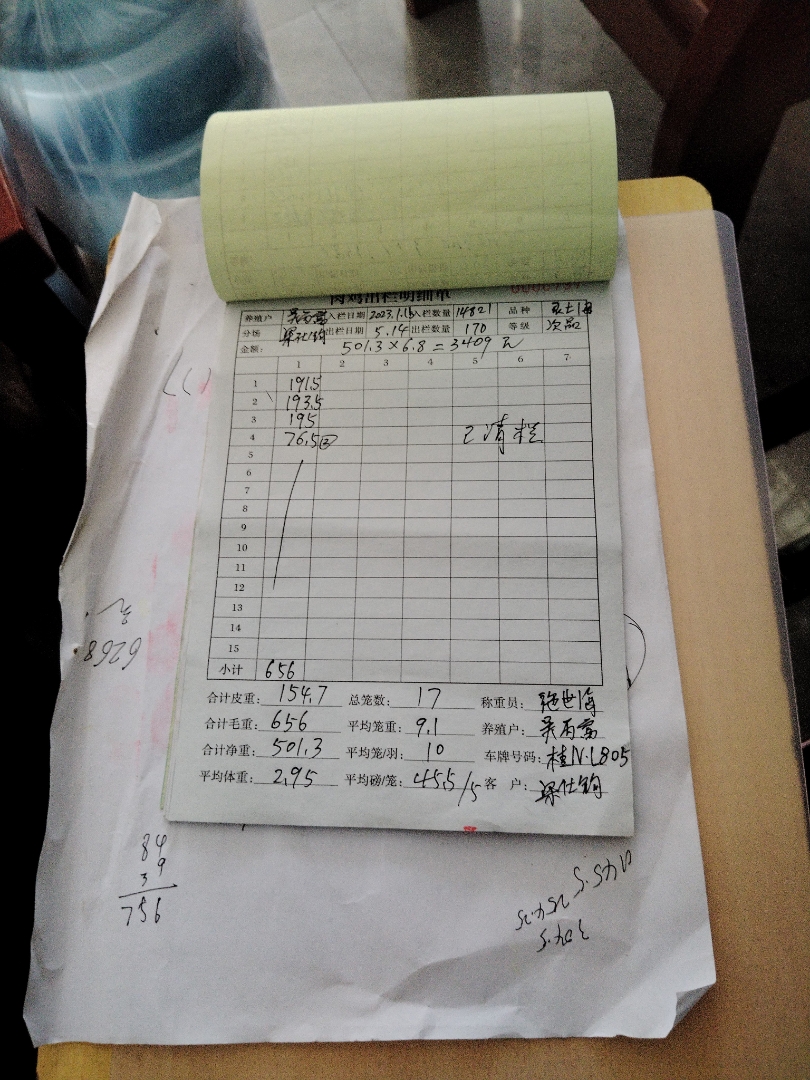 肉鸡出栏明细单
养殖户 入栏日期 2023.1.15 入栏数量 14821 品种
分场 梁仕钧 出栏日期 5.14 出栏数量 170 等级 次品
金额: 501.3×6.8=3409元
1 2 3 4 5 6 7
1 191.5
2 193.5
3 195
4 76.5② 已清栏
5
6
7
8
9
10
11
12
13
14
15
小计 656
合计皮重: 154.7 总笼数: 17 称重员:
合计毛重: 656 平均笼重: 9.1 养殖户:
合计净重: 501.3 平均笼/羽: 10 车牌号码: 桂N·L805
平均体重: 2.95 平均磅/笼: 45.5/5 客 户: 梁仕钧
6268
84
39
756